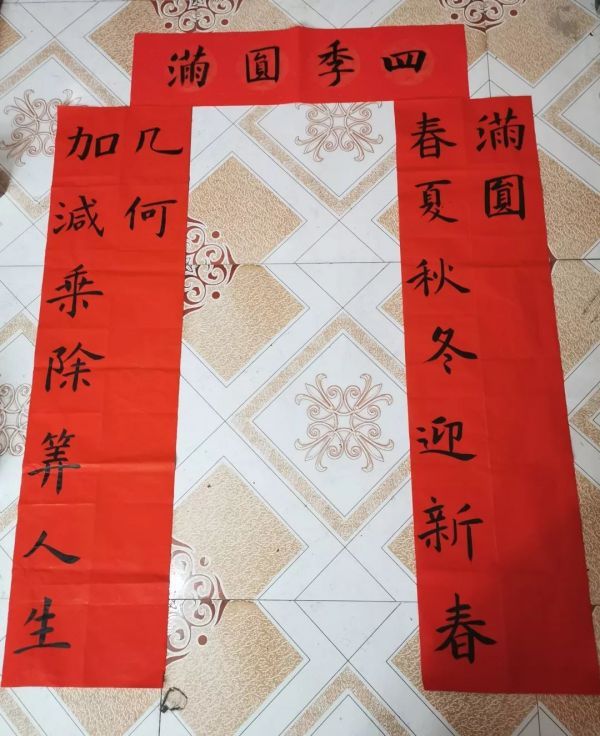 四季圓滿
春夏秋冬迎新春
滿圓
加減乘除筭人生
几何